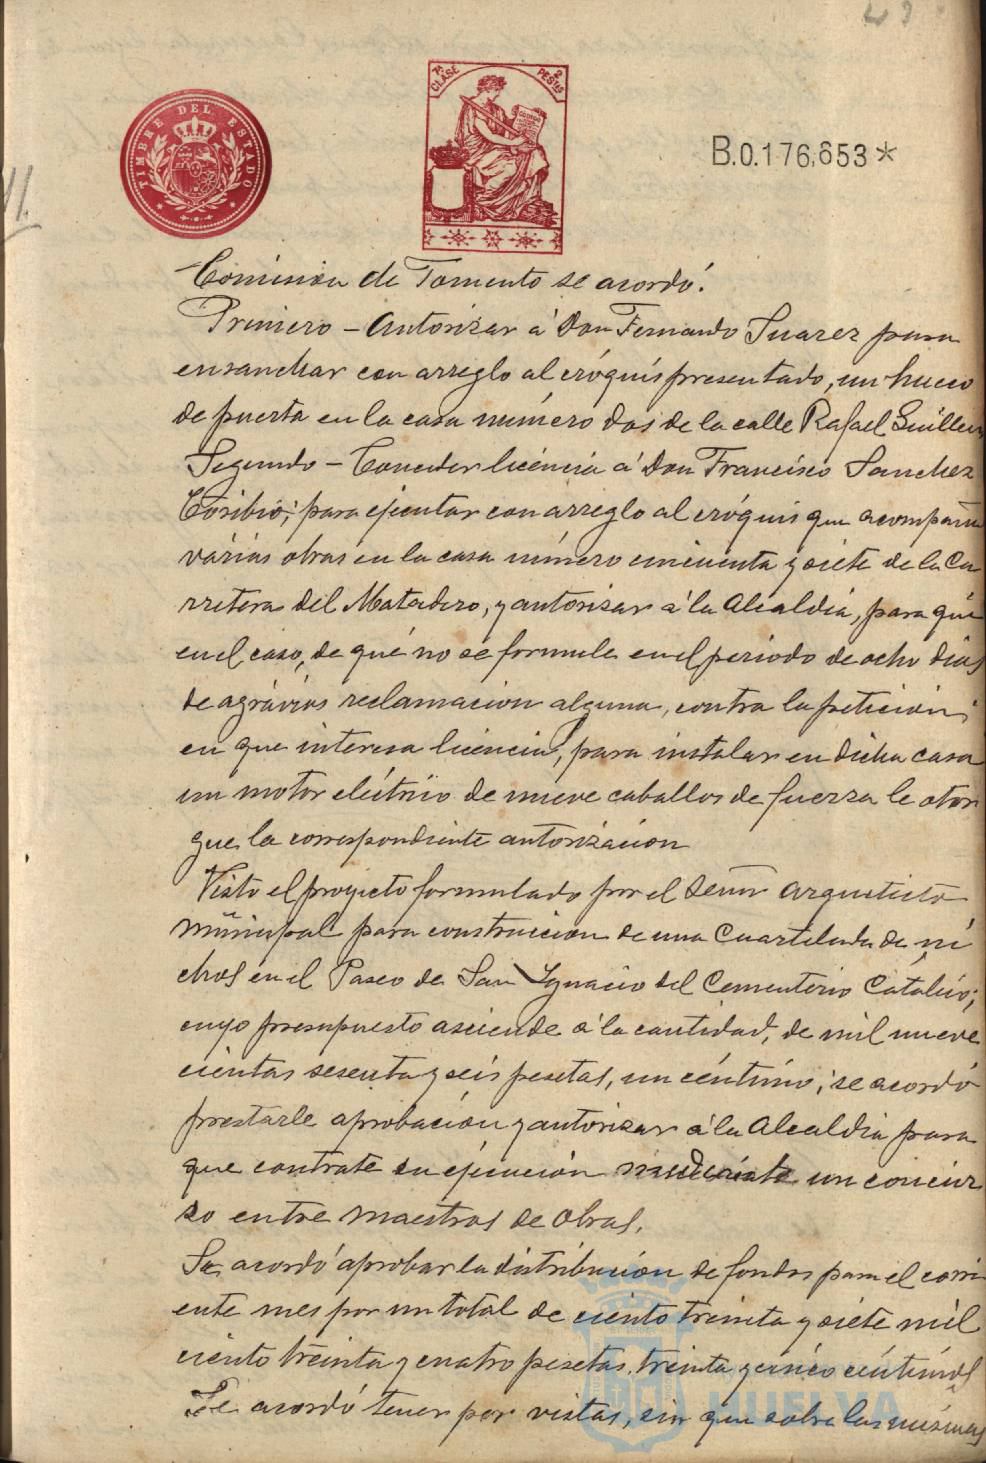 TIMBRE DEL ESTADO
7ª CLASE 2 PESTAS
B.0.176,653*
Comision de Fomento se acordó:
Primero – Autorizar á Don Fernando Suarez para
ensanchar con arreglo al cróquis presentado, un hueco
de puerta en la casa número dos de la calle Rafael Guillen
Segundo – Conceder licencia á Don Francisco Sanchez
Toribio; para ejecutar con arreglo al cróquis que acompaña
várias obras en la casa número cincuenta y siete de la Ca
rretera del Matadero, y autorizar á la Alcaldia, para que
en el caso, de que no se formule en el periodo de ocho dias
de agrávios reclamacion alguna, contra la peticion;
en que interesa licencia, para instalar en dicha casa
un motor eléctrico de nueve caballos de fuerza le otor
gue la correspondiente autorizacion
Visto el proyecto formulado por el Señor Arquitecto
municipal para construccion de una Cuartelada de ni
chos en el Paseo de San Ignacio del Cementerio Católico;
cuyo presupuesto asciende á la cantidad, de mil nueve
cientas sesenta y seis pesetas, un céntimo; se acordó
prestarle aprobacion y autorizar á la Alcaldia para
que contrate su ejecución mediante un concur
so entre Maestros de Obras.
Se acordó aprobar la distribucion de fondos para el corri
ente mes por un total de ciento treinta y siete mil
ciento treinta y cuatro pesetas, treinta y cinco céntimos
Se acordó tener por vistas, sin que sobre las mismas
HUELVA